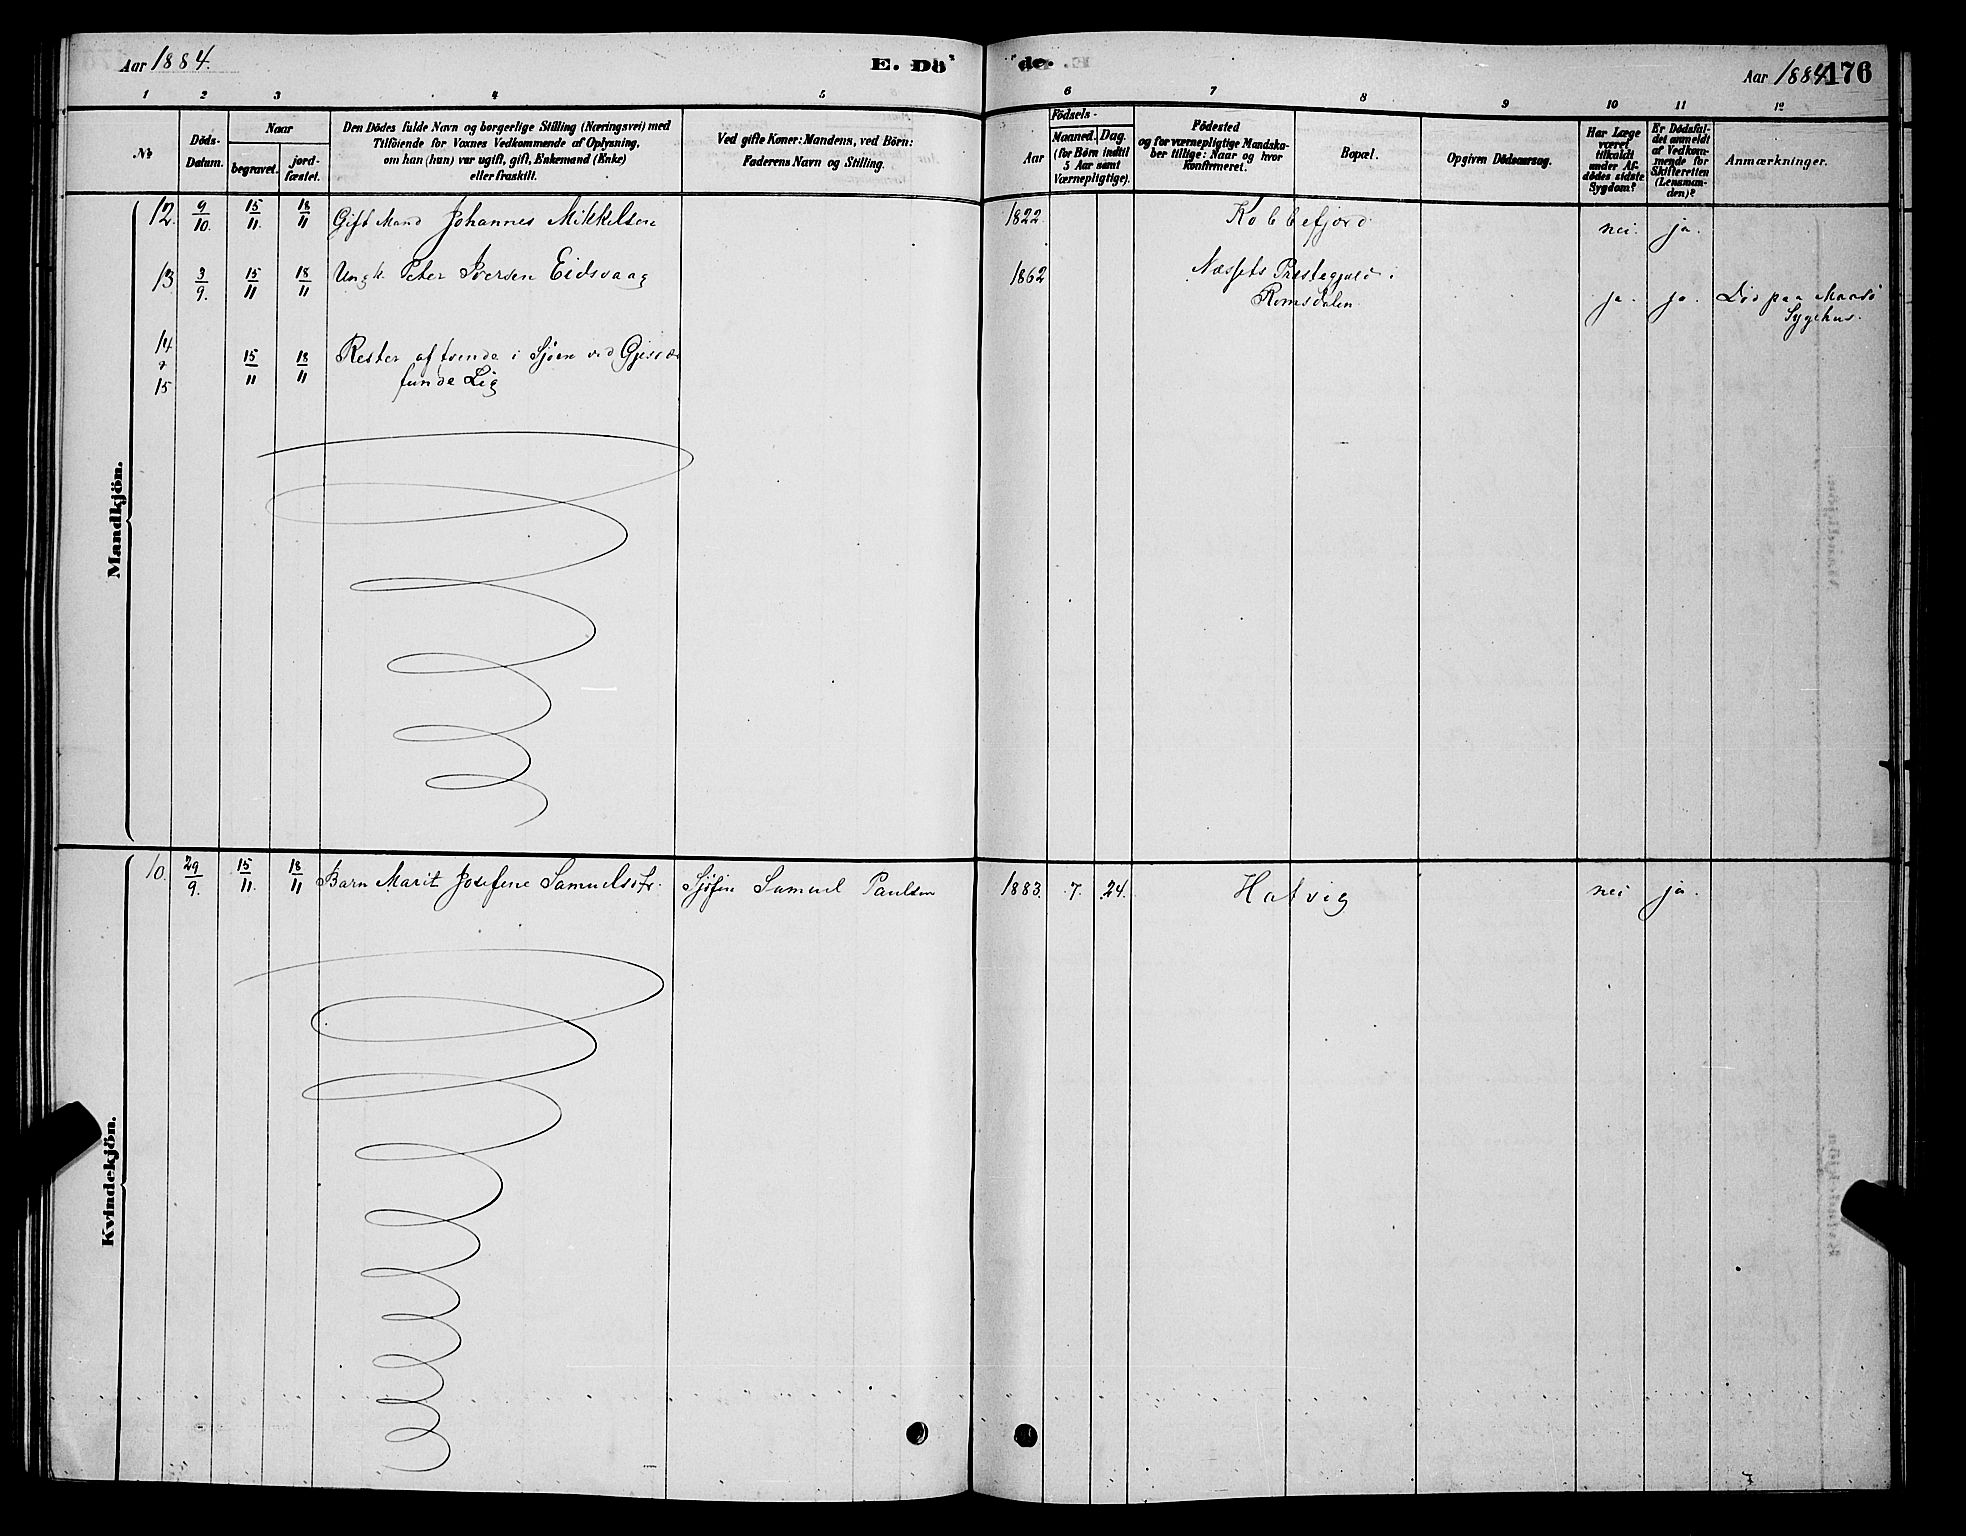 Aar 1884.
E. Dö
de.
Aar 1884
176
1 2 3 4 5 6 7 8 9 10 11 12
No.
Döds-
Datum.
Naar
begravet.
jord-
fæstet.
Den Dödes fulde Navn og borgerlige Stilling (Næringsvei) med
Tilföiende for Voxnes Vedkommende af Oplysning,
om han (hun) var ugift, gift, Enkemand (Enke)
eller fraskilt.
Ved gifte Koner: Mandens, ved Börn:
Faderens Navn og Stilling.
Födsels-
Aar
Maaned.
Dag.
(for Börn indtil
5 Aar samt
Værnepligtige).
Födested
og for værnepligtige Mandska-
ber tillige: Naar og hvor
konfirmeret.
Bopæl.
Opgiven Dödsaarsag.
Har Læge
været
tilkaldt
under Af-
dödes sidste
Sygdom?
Er Dödsfal-
det anmeldt
af Vedkom-
mende for
Skifteretten
(Lensman-
den)?
Anmærkninger.
Mandkjön.
12. 9/10. 15/11. 18/11 Gift Mand Johannes Mikkelsen 1822. Kobbefjord. nei. ja.
13. 3/9. 15/11 18/11 Ungk. Peter Iversen Eidsvaag 1862 Næssets Præstegjæld i
Romsdalen. ja. ja. Död paa Maasö
Sygehus.
14
&
15
15/11 18/11 Rester af tvende i Sjöen ved
fundne Lig
Kvindekjön.
10. 29/9. 15/11. 18/11 Barn Marit Josefine Samuelsdtr. Sjöfin Samuel Paulsen 1883. 7. 24. Hatvig nei ja.